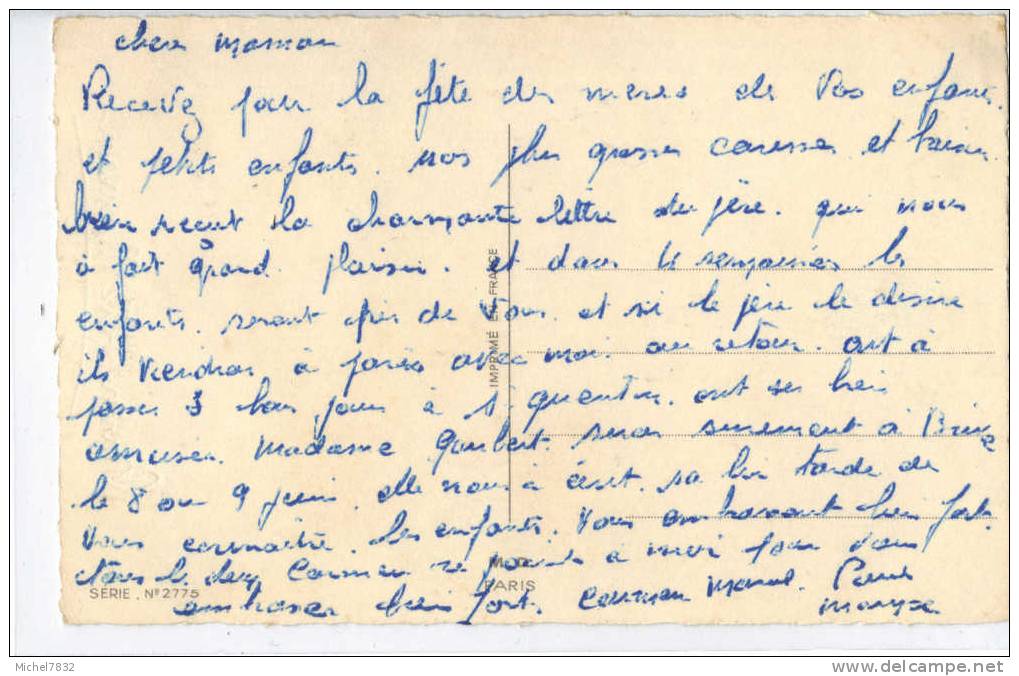 cher maman
Recevez pour la fête des meres de Vos enfants
et petits enfants. nos plus grosses caresses et baiser
bien recut la charmante lettre du père. qui nous
à fait grand plaisir. et dans 4 semaines les
enfants. seront près de Vous. et si le père le desire
ils viendron à paris avec moi au retour. ont à
passer 3 bon jour à St quentin. ont ses bien
amuser. Madame Goubert. sera surement à Brive
le 8 ou 9 juin. elle nous à écrit. sa lui tarde de
Vous connaitre. les enfants. Vous embrassent bien fort.
tous le deux Carmen se joint à moi pour Vous
embrasser bien fort. Carmen Marcel. Paul
Maryse
IMPRIMÉ EN FRANCE
M.D.
PARIS
SÉRIE. N° 2775
Michel7832
http://www.delcampe.net